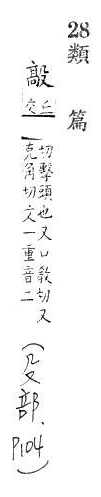 28類篇
毃
丘交
切擊頭也又口敎切又
克角切文一重音二
(殳部. P104)